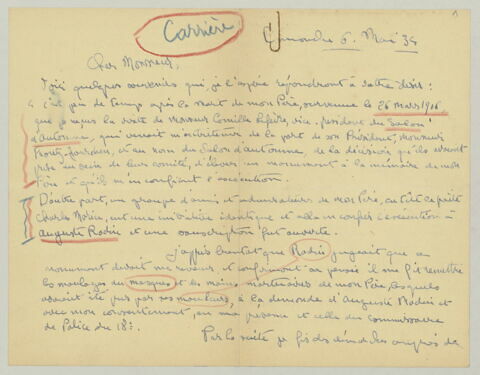 1
Carrière
6 Mai 35
Cher Monsieur,
Voici quelques souvenirs qui, je l'espère répondront à votre désir :
C'est peu de temps après la mort de mon Père, survenue le 26 mars 1906
que je reçus la visite de Monsieur Camille Lefèvre, vice président du Salon
d'Automne, qui venait m'entretenir de la part de son Président, Monsieur
Frantz-Jourdain, et au nom du Salon d'Automne, de la décision qu'ils avaient
prise au sein de leur comité, d'élever un monument à la mémoire de mon
Père et qu'ils m'en confiaient l'exécution.
D'autre part, un groupe d'amis et admirateurs de mon Père, en tête
Charles Morice, eut une initiative identique et alla en confier l'exécution à
Auguste Rodin et une souscription fut ouverte.
J'appris bientôt que Rodin jugeait que ce
monument devait me revenir et confirmant sa pensée il me fit remettre
les moulages du masque et les mains mortuaires de mon Père, lesquels
avaient été pris par ses mouleurs, à la demande d'Auguste Rodin et
avec mon consentement, en ma présence et celle du commissaire
de Police du 18e.
Par la suite je fis des démarches auprès de